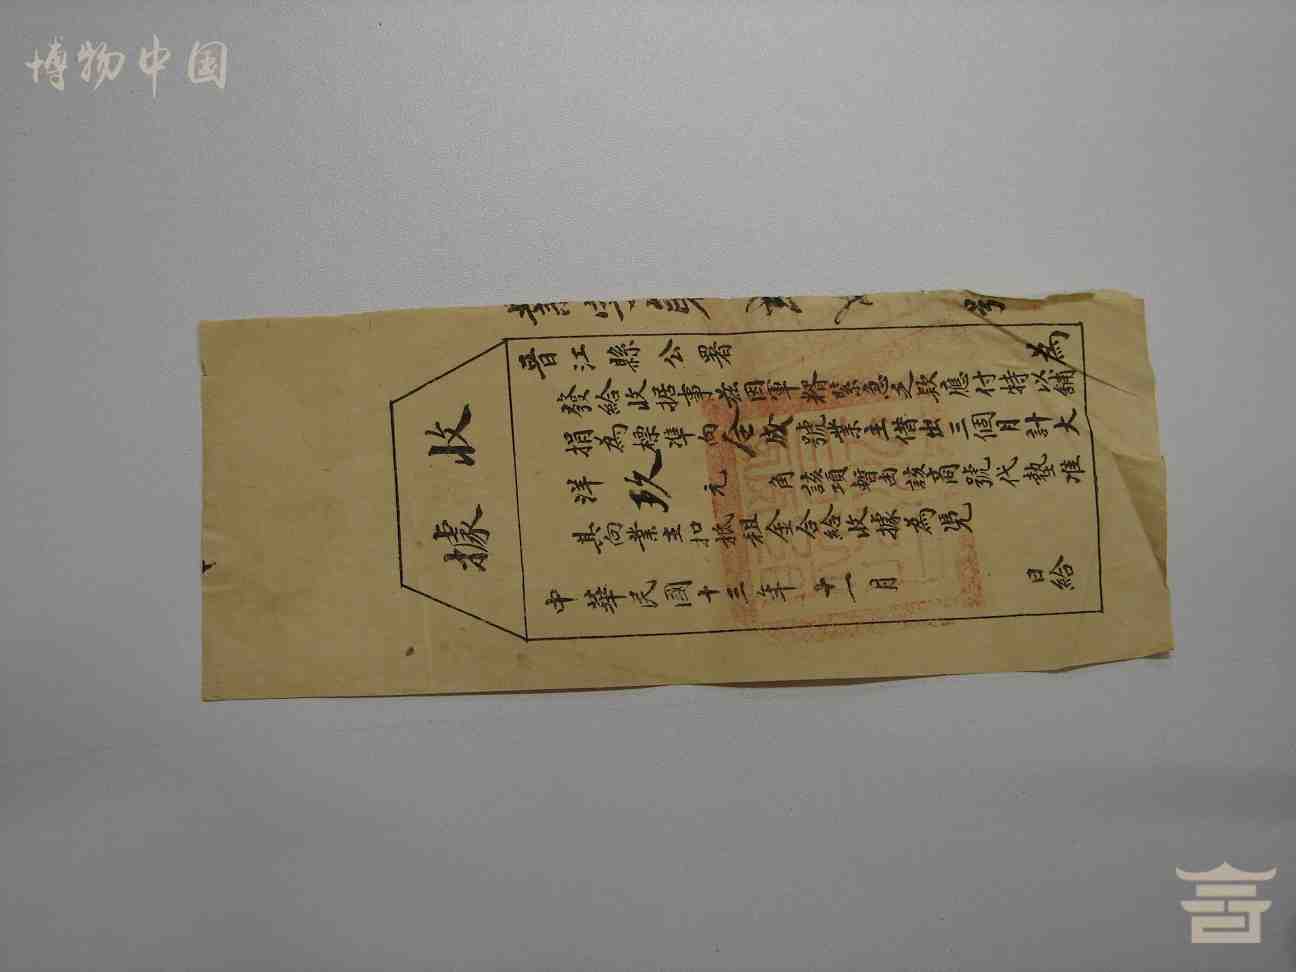 博物中国
收據
号
晋江縣公署為
發給收据事茲因軍糈緊急之款應付特以鋪
捐為標準向成號業主借出三個月計大
洋玖元角該項暫由該商號代墊准
其向業主扣抵租金合給收據為凭
中華民國十三年十一月日給